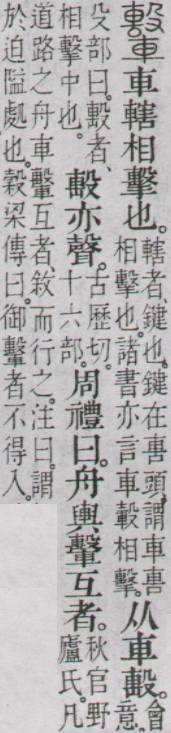 轚車轄相擊也。轄者、鍵也。鍵在軎頭。謂車軎相擊也。諸書亦言車轂相擊。从車𣪠。會意。
殳部曰。𣪠者、相擊中也。𣪠亦聲。古歷切。十六部。周禮曰。舟輿轚互者。秋官野廬氏。凡
道路之舟車轚互者、敘而行之。注曰。謂
於迫隘處也。穀梁傳曰。御轚者不得入。